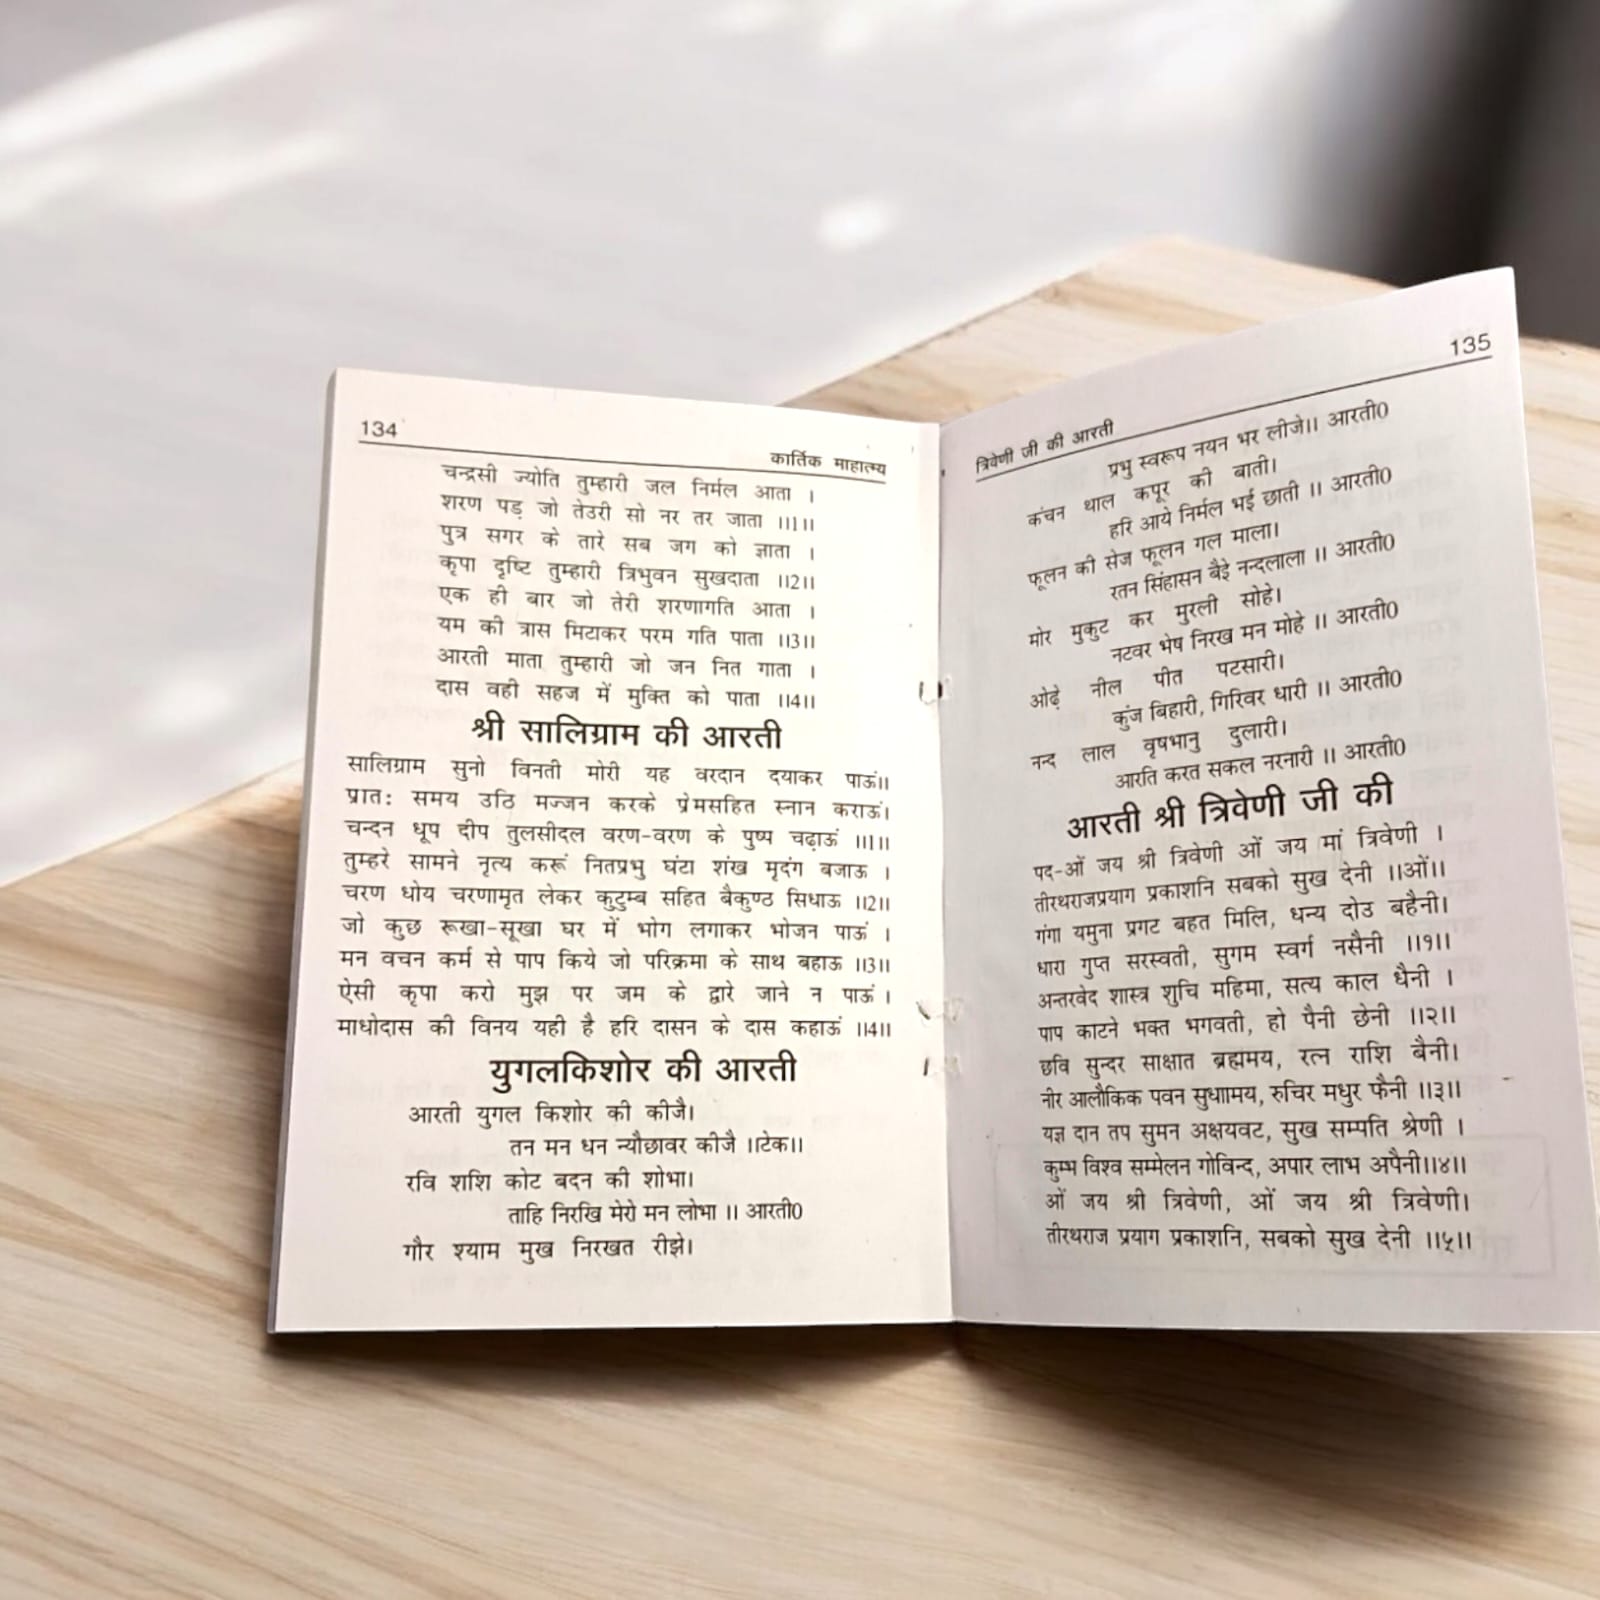 134
कार्तिक माहात्म्य
चन्द्रसी ज्योति तुम्हारी जल निर्मल आता ।
शरण पड़ जो तेउरी सो नर तर जाता ।।1।।
पुत्र सगर के तारे सब जग को ज्ञाता ।
कृपा दृष्टि तुम्हारी त्रिभुवन सुखदाता ।।2।।
एक ही बार जो तेरी शरणागति आता ।
यम की त्रास मिटाकर परम गति पाता ।।3।।
आरती माता तुम्हारी जो जन नित गाता ।
दास वही सहज में मुक्ति को पाता ।।4।।
श्री सालिग्राम की आरती
सालिग्राम सुनो विनती मोरी यह वरदान दयाकर पाऊं।।
प्रातः समय उठि मज्जन करके प्रेमसहित स्नान कराऊं।
चन्दन धूप दीप तुलसीदल वरण-वरण के पुष्प चढ़ाऊं ।।1।।
तुम्हरे सामने नृत्य करूं नितप्रभु घंटा शंख मृदंग बजाऊ ।
चरण धोय चरणामृत लेकर कुटुम्ब सहित बैकुण्ठ सिधाऊ ।।2।।
जो कुछ रूखा-सूखा घर में भोग लगाकर भोजन पाऊं ।
मन वचन कर्म से पाप किये जो परिक्रमा के साथ बहाऊ ।।3।।
ऐसी कृपा करो मुझ पर जम के द्वारे जाने न पाऊं ।
माधोदास की विनय यही है हरि दासन के दास कहाऊं ।।4।।
युगलकिशोर की आरती
आरती युगल किशोर की कीजै।
तन मन धन न्यौछावर कीजै ।।टेक।।
रवि शशि कोट बदन की शोभा।
ताहि निरखि मेरो मन लोभा ।। आरती0
गौर श्याम मुख निरखत रीझे।
135
त्रिवेणी जी की आरती
प्रभु स्वरूप नयन भर लीजे।। आरती0
कंचन थाल कपूर की बाती।
हरि आये निर्मल भई छाती ।। आरती0
फूलन की सेज फूलन गल माला।
रतन सिंहासन बैइे नन्दलाला ।। आरती0
मोर मुकुट कर मुरली सोहे।
नटवर भेष निरख मन मोहे ।। आरती0
ओढ़े नील पीत पटसारी।
कुंज बिहारी, गिरिवर धारी ।। आरती0
नन्द लाल वृषभानु दुलारी।
आरति करत सकल नरनारी ।। आरती0
आरती श्री त्रिवेणी जी की
पद-ओं जय श्री त्रिवेणी ओं जय मां त्रिवेणी ।
तीरथराजप्रयाग प्रकाशनि सबको सुख देनी ।।ओं।।
गंगा यमुना प्रगट बहत मिलि, धन्य दोउ बहैनी।
धारा गुप्त सरस्वती, सुगम स्वर्ग नसैनी ।।१।।
अन्तरवेद शास्त्र शुचि महिमा, सत्य काल धैनी ।
पाप काटने भक्त भगवती, हो पैनी छेनी ।।२।।
छवि सुन्दर साक्षात ब्रह्ममय, रत्न राशि बैनी।
नीर आलौकिक पवन सुधाामय, रुचिर मधुर फैनी ।।३।।
यज्ञ दान तप सुमन अक्षयवट, सुख सम्पति श्रेणी ।
कुम्भ विश्व सम्मेलन गोविन्द, अपार लाभ अपैनी।।४।।
ओं जय श्री त्रिवेणी, ओं जय श्री त्रिवेणी।
तीरथराज प्रयाग प्रकाशनि, सबको सुख देनी ।।५।।